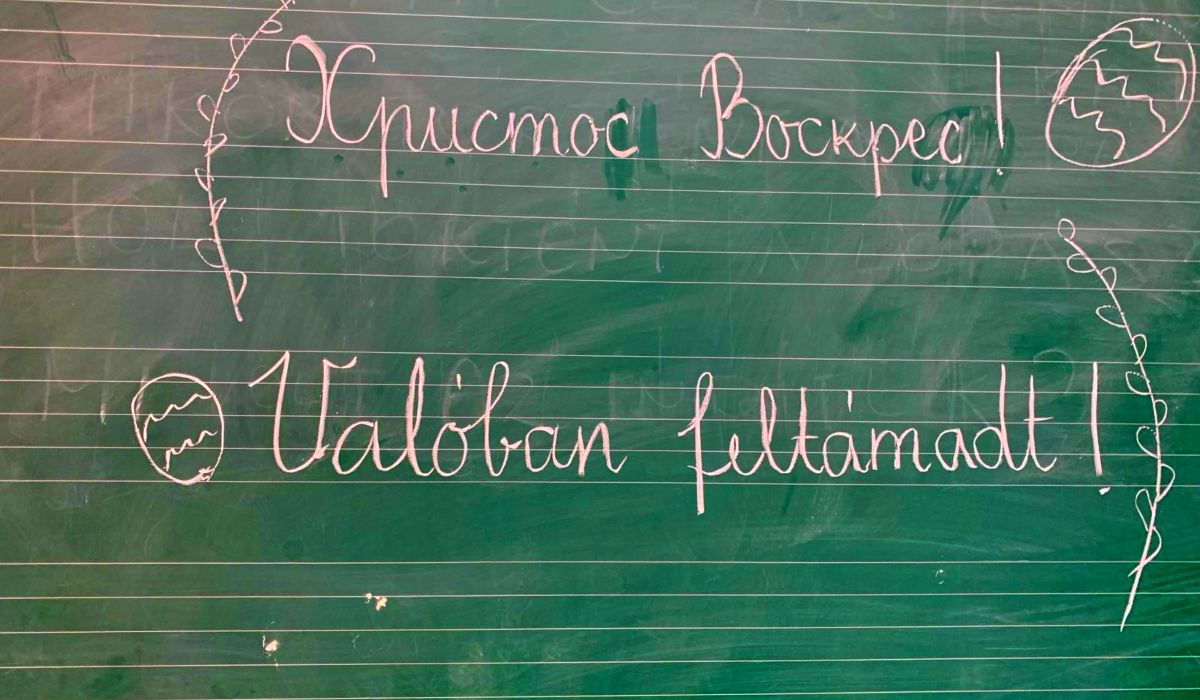 Христос Воскрес!
Valóban feltámadt!